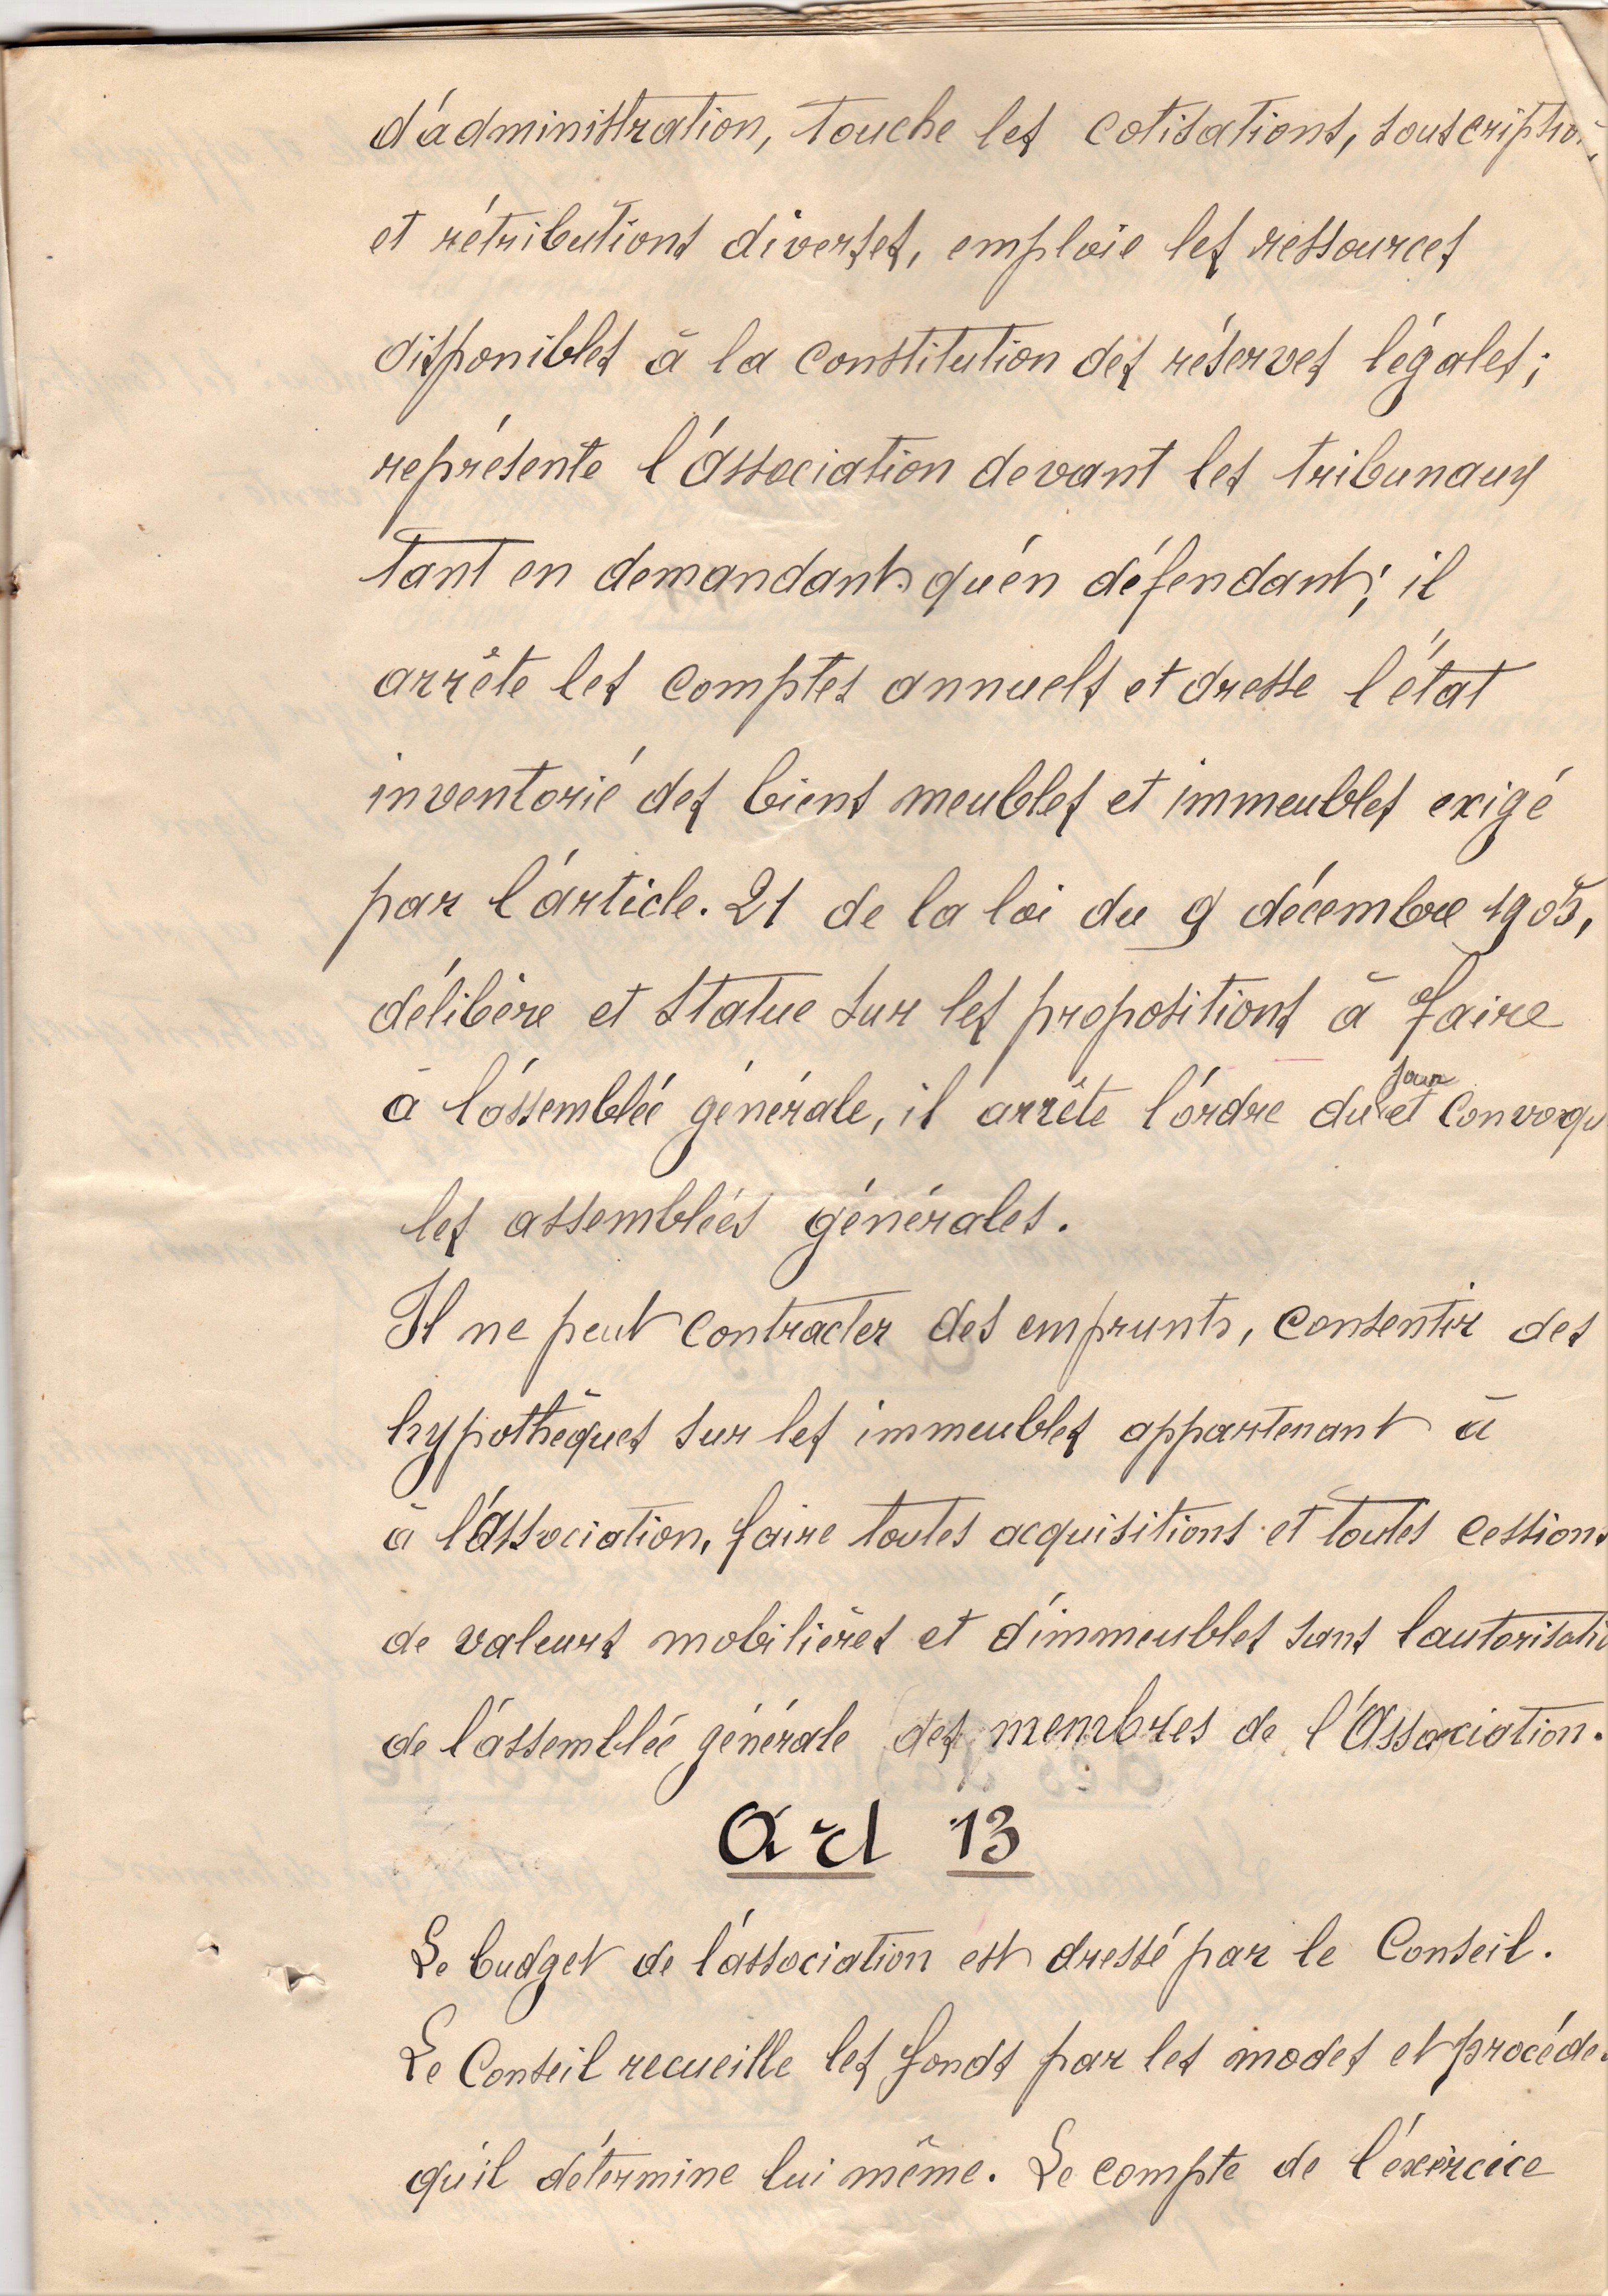 d'administration, touche les cotisations, souscription,
et rétributions diverses, emploie les ressources
disponibles à la constitution des réserves légales;
représente l'association devant les tribunaux
tant en demandant qu'en défendant; il
arrête les comptes annuels et dresse l'état
inventorié des biens meubles et immeubles exigé
par l'article. 21 de la loi du 9 décembre 1905,
délibère et statue sur les propositions à faire
à l'assemblée générale, il arrête l'ordre du jour et convoqu
les assemblées générales.
Il ne peut contracter des emprunts, consentir des
hypothèques sur les immeubles appartenant à
à l'association, faire toutes acquisitions et toutes cessions
de valeurs mobilières et d'immeubles sans l'autorisatio
de l'assemblée générale des membres de l'Association.
Art 13
Le budget de l'association est dressé par le Conseil.
Le Conseil recueille les fonds par les modes et procédé
qu'il détermine lui même. Le compte de l'exercice